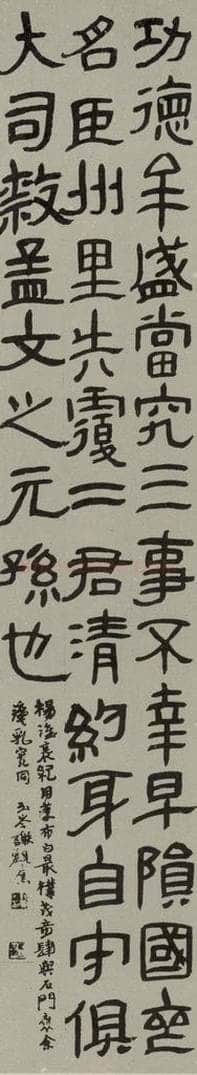 功德牟盛當究三事不幸早隕國喪
名臣州里失覆二君清約身自守俱
大司隸孟文之元孫也
楊淮表紀用筆布白最樸茂奇肆與石門頌余
愛同 玉岑謝覲虞